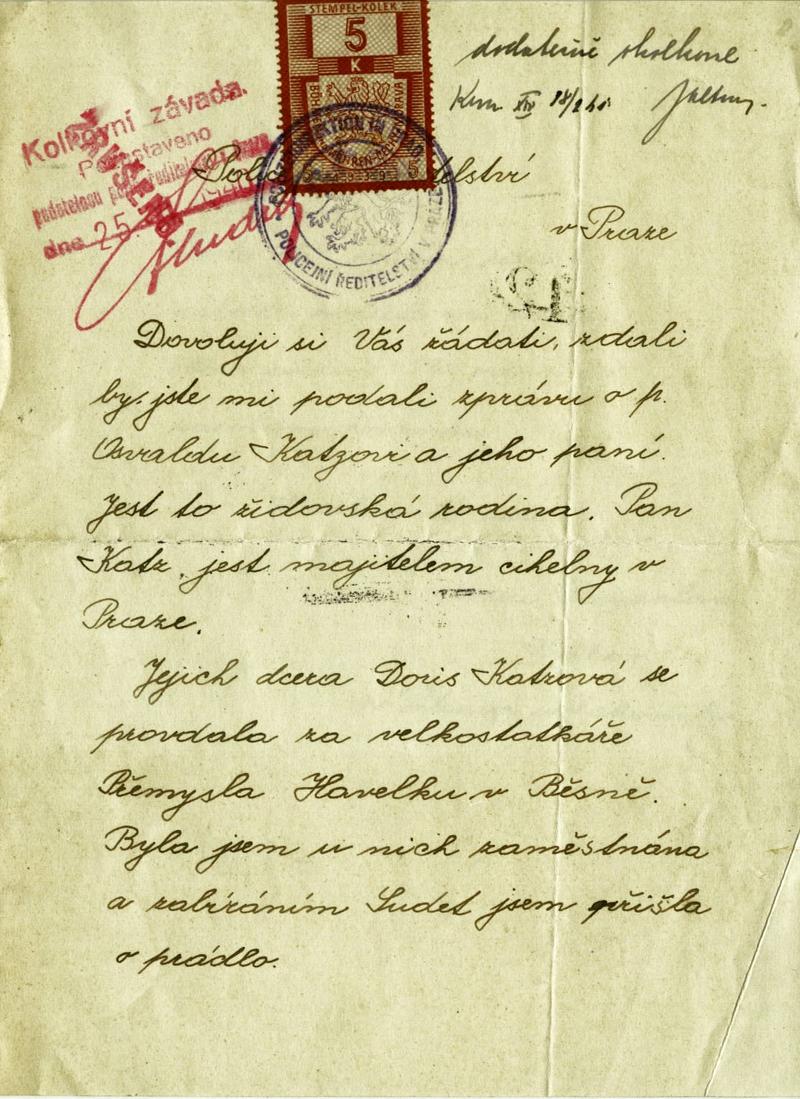 STEMPEL-KOLEK
5
K
dodatečně okolkone
Kolkovní závada.
Pozastaveno
dne 25.
POLICEJNÍ ŘEDITELSTVÍ V PRAZE
v Praze
Dovoluji si Vás žádati, zdali
by jste mi podali zprávu o p.
Osvaldu Katzovi a jeho paní.
Jest to židovská rodina. Pan
Katz, jest majitelem cihelny v
Praze.
Jejich dcera Doris Katzová se
provdala za velkostatkáře
Přemysla Havelku v Běsně.
Byla jsem u nich zaměstnána
a zabíráním Sudet jsem přišla
o prádlo.